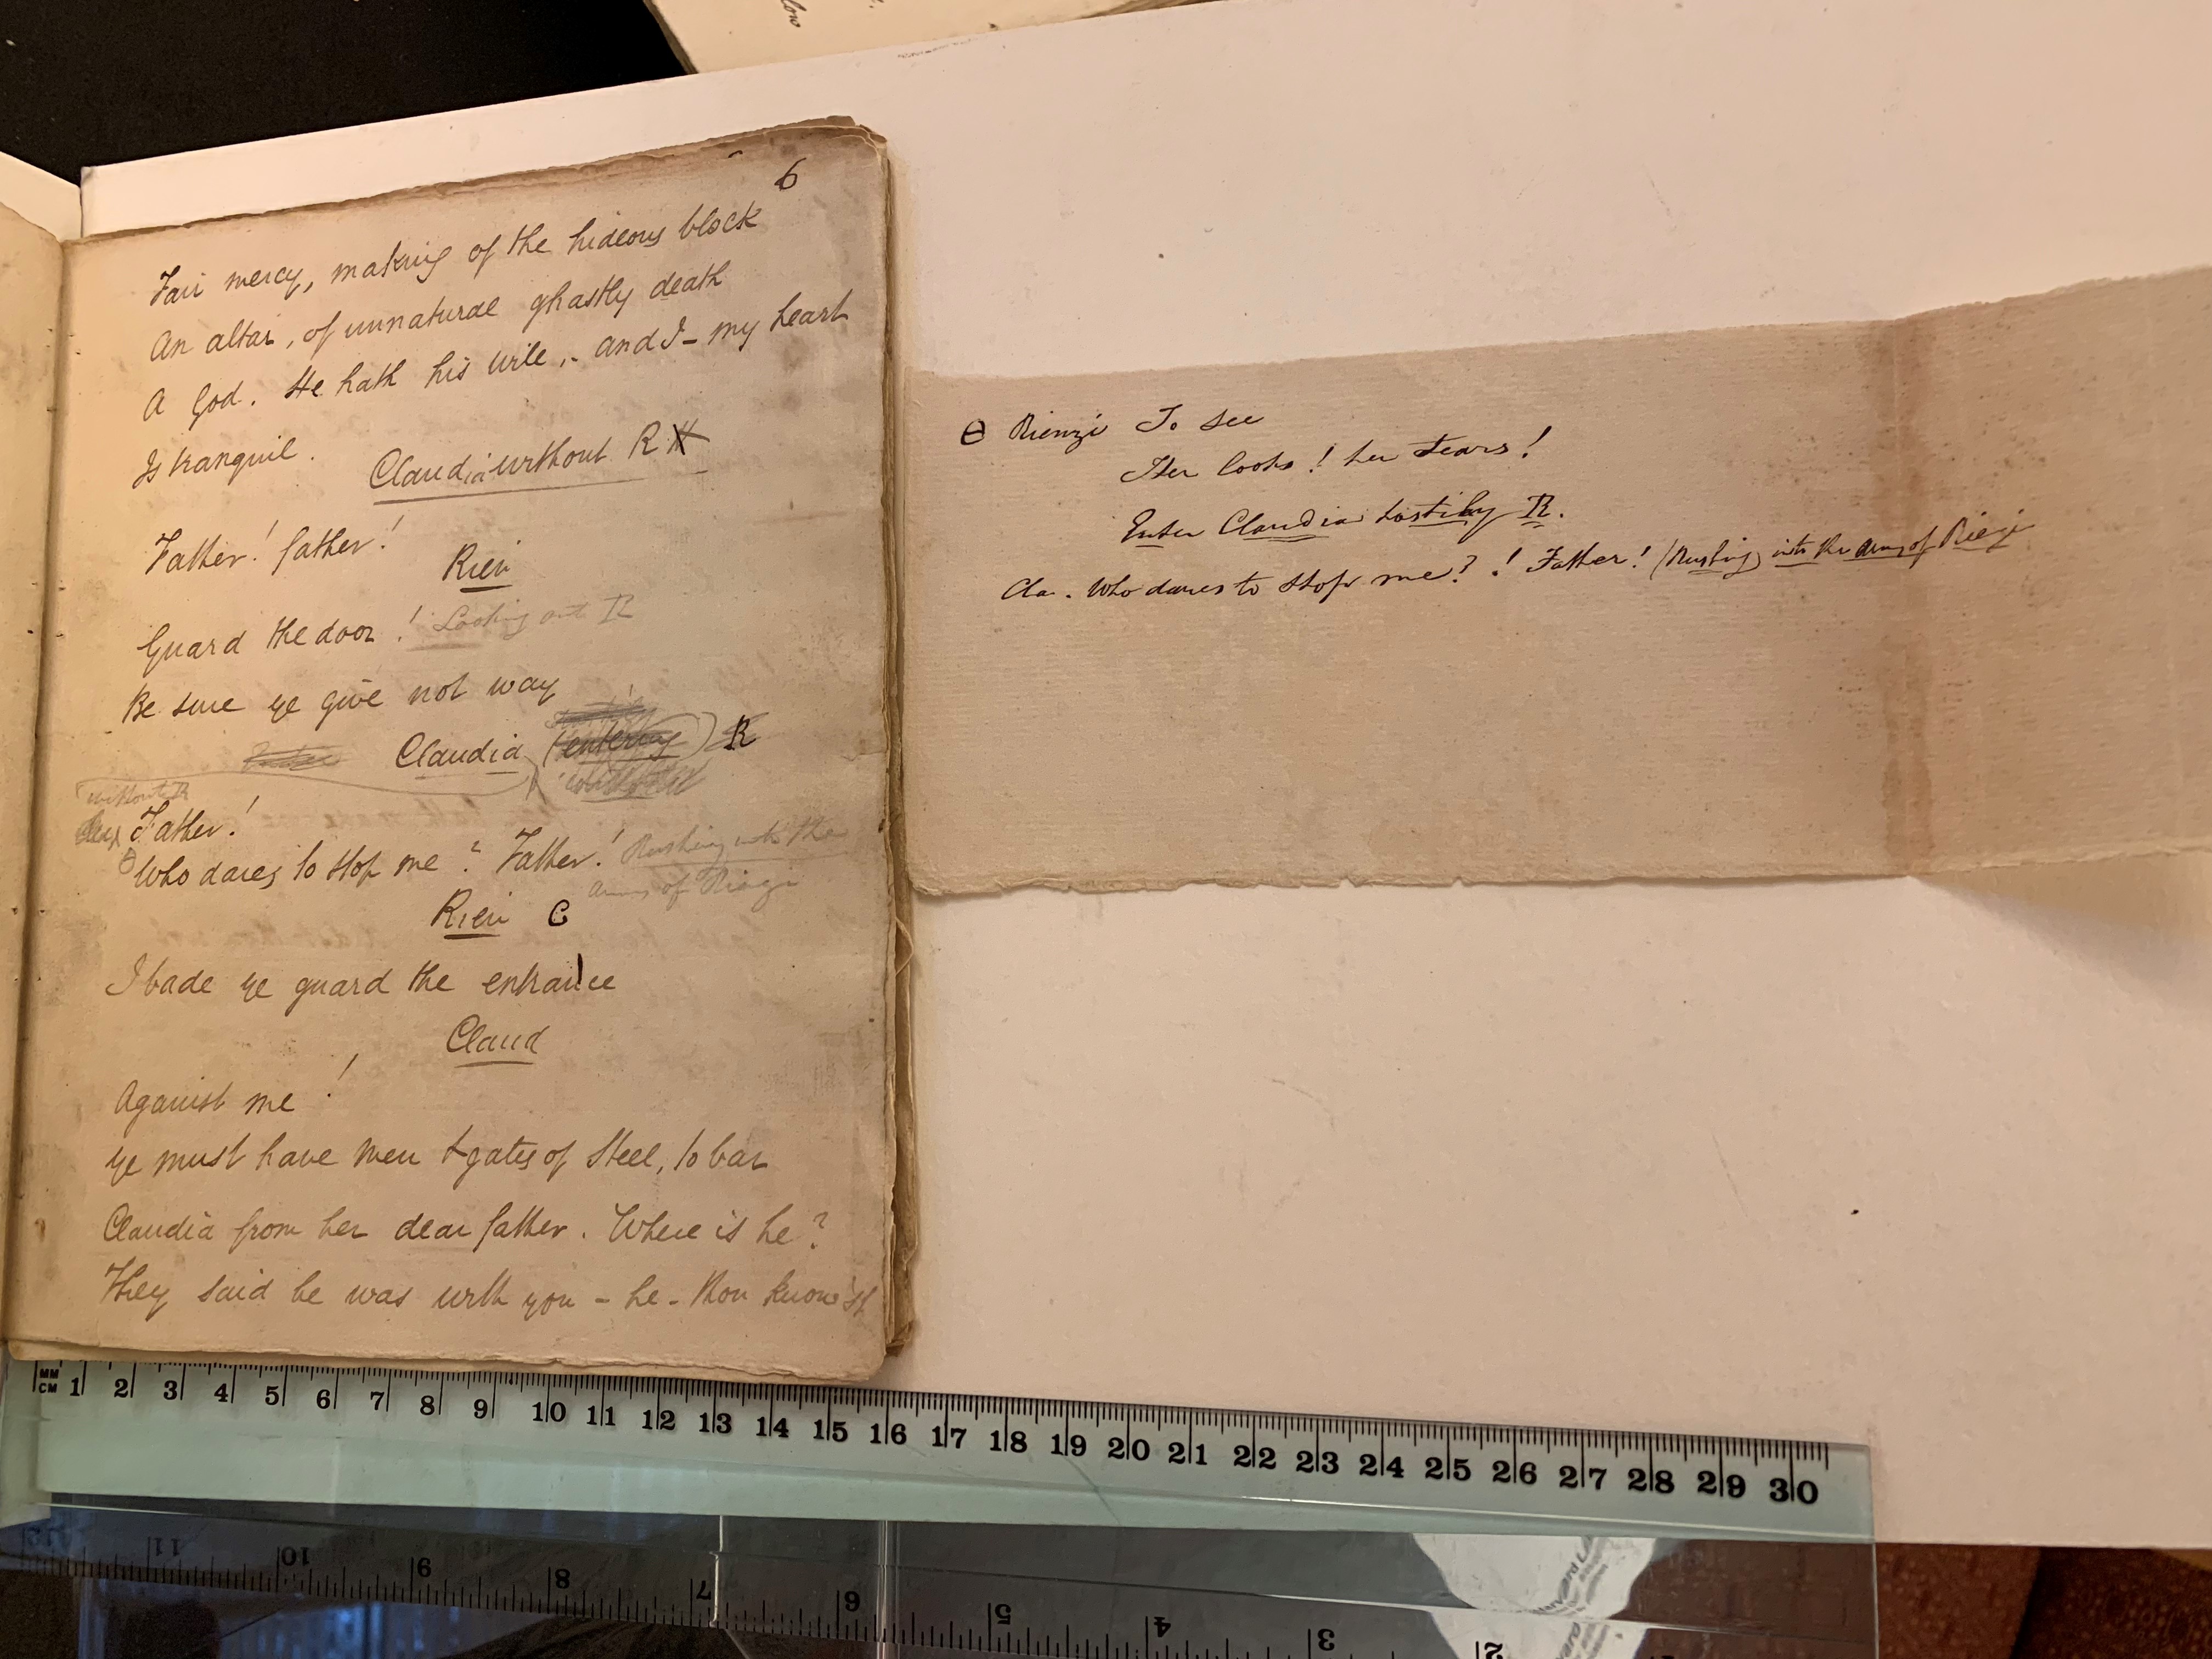 6
Fair mercy, making of the hideous block
An altar, of unnatural ghastly death
A God. He hath his will,- and I- my heart
Is tranquil.
Claudia without R H
Father! father!
Rien
Guard the door! Looking out R
Be sure ye give not way
Claudia (entering) R
without R
Father!
Θ Who dares to stop me? Father! Rushing into the
arms of Rienzi
Rien C
I bade ye guard the entrance
Claud
Against me!
Ye must have men & gates of steel, to bar
Claudia from her dear father. Where is he?
They said he was with you - he - thou know'st
Θ Rienzi To see
Her looks! her tears!
Enter Claudia hastily R.
Cla. Who dares to stop me?! Father! (Rushing) into the arms of Rienzi
low
MM
CM 1 2 3 4 5 6 7 8 9 10 11 12 13 14 15 16 17 18 19 20 21 22 23 24 25 26 27 28 29 30
11 10 9 8 7 6 5 4 3 2